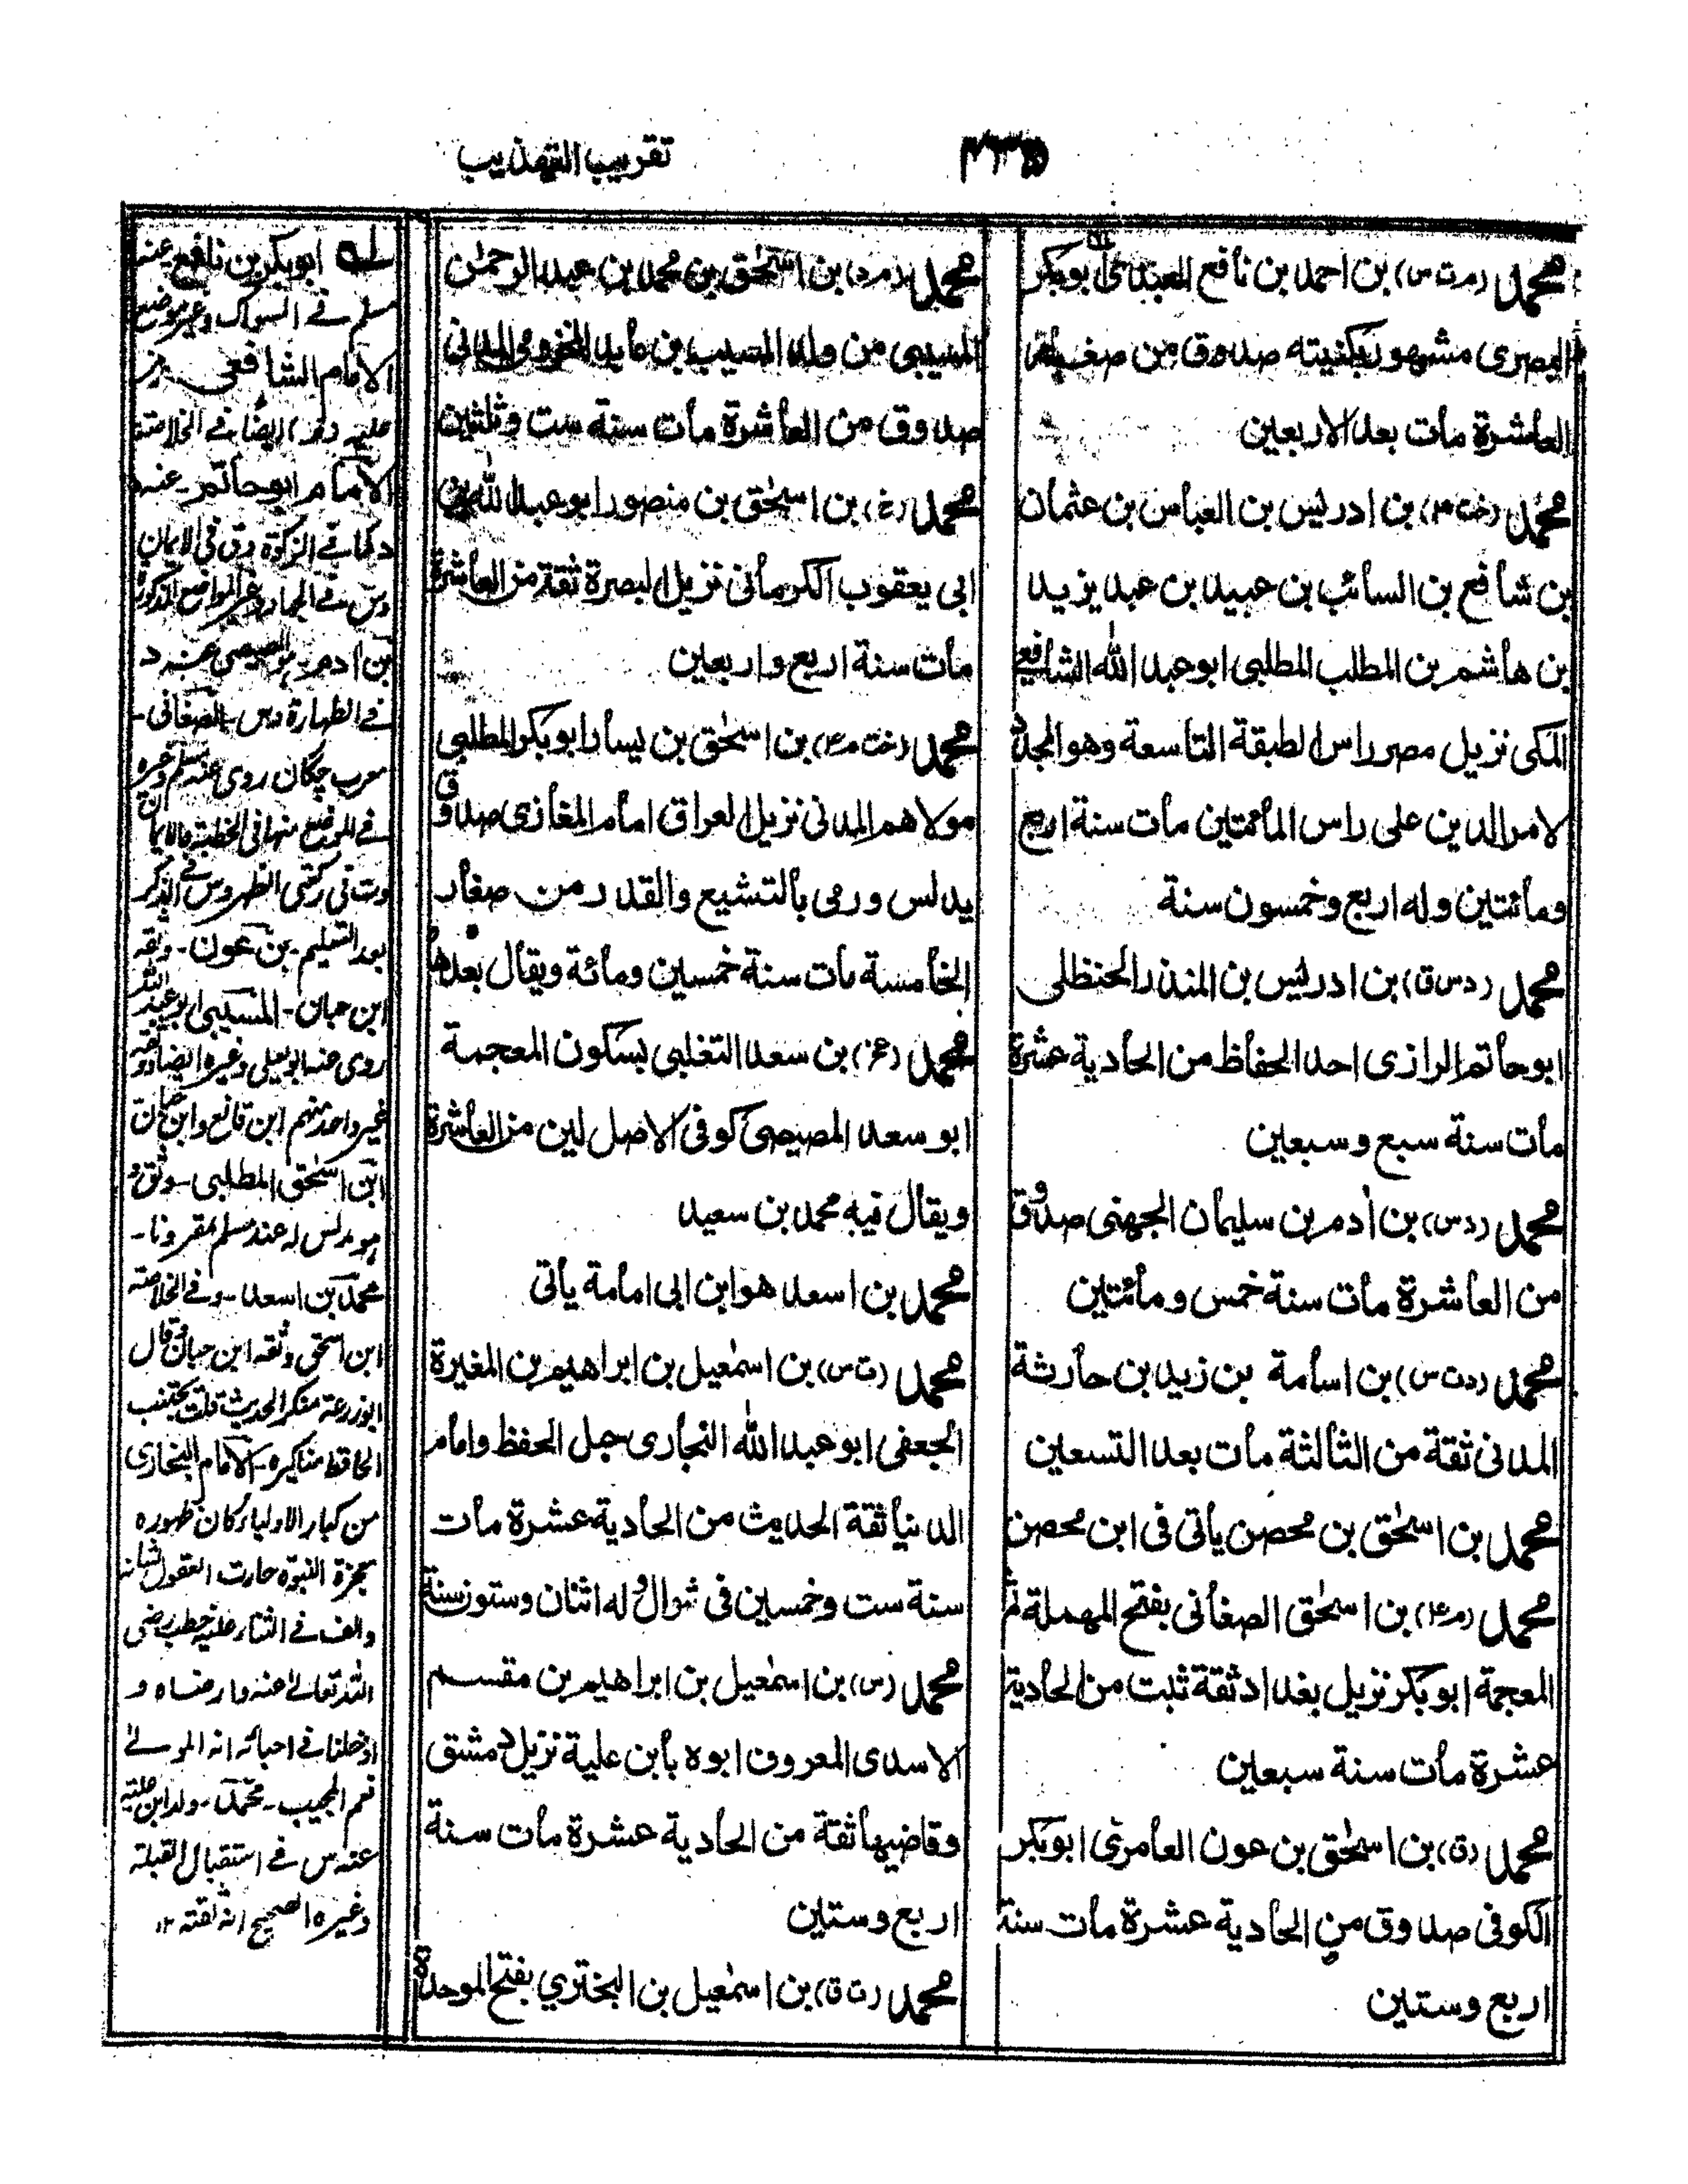 تقريب التهذيب
محمد (م ت س) بن احمد بن نافع العبدي ابوبكر
البصرى مشهور بكنيته صدوق من صغار
العاشرة مات بعد الاربعين
محمد (خت م) بن ادريس بن العباس بن عثمان
بن شافع بن السائب بن عبيد بن عبد يزيد
بن هاشم بن المطلب المطلبى ابو عبد الله الشافعى
المكى نزيل مصر راس الطبقة التاسعة وهو المجدد
لامر الدين على راس المائتين مات سنة اربع
ومائتين وله اربع وخمسون سنة
محمد (د س ق) بن ادريس بن المنذر الحنظلى
ابو حاتم الرازى احد الحفاظ من الحادية عشرة
مات سنة سبع وسبعين
محمد (د س) بن أدم بن سليمان الجهنى صدوق
من العاشرة مات سنة خمس ومائتين
محمد (د ت س) بن اسامة بن زيد بن حارثة
المدنى ثقة من الثالثة مات بعد التسعين
محمد بن اسحٰق بن محصن يأتى فى ابن محصن
محمد (م ع۴) بن اسحٰق الصغانى بفتح المهملة ثم
المعجمة ابو بكر نزيل بغداد ثقة ثبت من الحادية
عشرة مات سنة سبعين
محمد (ق) بن اسحٰق بن عون العامرى ابو بكر
الكوفى صدوق من الحادية عشرة مات سنة
اربع وستين
محمد (م د) بن اسحٰق بن محمد بن عبد الرحمٰن
المسيبى من ولد المسيب بن عايد المخزومى المدنى
صدوق من العاشرة مات سنة ست وثلثين
محمد (خ) بن اسحٰق بن منصور ابو عبد الله بن
ابى يعقوب الكرمانى نزيل البصرة ثقة من العاشرة
مات سنة اربع واربعين
محمد (خت م ع۴) بن اسحٰق بن يسار ابو بكر المطلبى
مولاهم المدنى نزيل العراق امام المغازى صدوق
يدلس ورمى بالتشيع والقدر من صغار
الخامسة مات سنة خمسين ومائة ويقال بعدها
محمد (عن) بن سعد التغلبى بسكون المعجمة
ابو سعد المصيصى كوفى الاصل لين من العاشرة
ويقال فيه محمد بن سعيد
محمد بن اسعد هو ابن ابى امامة يأتى
محمد (ت س) بن اسمٰعيل بن ابراهيم بن المغيرة
الجعفى ابو عبد الله البخارى جبل الحفظ وامام
الدنيا ثقة الحديث من الحادية عشرة مات
سنة ست وخمسين فى شوال وله اثنان وستون سنة
محمد (س) بن اسمٰعيل بن ابراهيم بن مقسم
الاسدى المعروف ابوه بابن علية نزيل دمشق
وقاضيها ثقة من الحادية عشرة مات سنة
اربع وستين
محمد (ت ق) بن اسمٰعيل بن البخترى بفتح الموحدة
ابوبكر بن نافع عنه
مسلم فى السواك وغير موضع
الامام الشافعى
عليه ايضا فى الخلاصة
الامام ابو حاتم عنه
د كما فى الزكوة وق فى الايمان
وس فى الجهاد وغير المواضع المذكورة
بن أدم المصيصى عنه د
فى الطهارة وس - الصغانى -
معرب چگان روى عنه مسلم وغيره
فى المواضع منها فى الخطبة والايمان
وت فى ركعتى الظهر وس فى الذكر
بعد التسليم - بن عون - وثقه
ابن حبان - المسيبى ابو عبد الله
روى عنه ابو يعلى وغيره ايضا وثقه
غير واحد منهم ابن قانع وابن حبان
ابن اسحٰق المطلبى - وثق و
هو مدلس له عند مسلم مقرونا -
محمد بن اسعد - وفى الخلاصة
ابن اسحق وثقه ابن حبان وقال
ابو زرعة منكر الحديث قلت يجتنب
الحافظ مناكيره - الامام البخارى
من كبار الاولياء كان ظهوره
معجزة النبوة حارت العقول شانه
والف فى الثناء عليه خطب رضى
الله تعالىٰ عنه وارضاه و
ادخلنا فى احبائه انه المولىٰ
نعم المجيب - محمد - ولد ابن علية
عنه س فى استقبال القبلة
وغيره الصحيح انه ثقة ۱۲